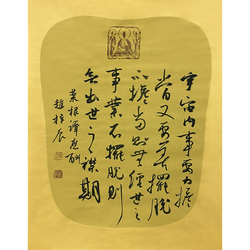 宇宙内事要力擔
當又要善擺脱
不擔當則無經世之
事業不擺脱則
無出世之襟期
菜根譚應酬